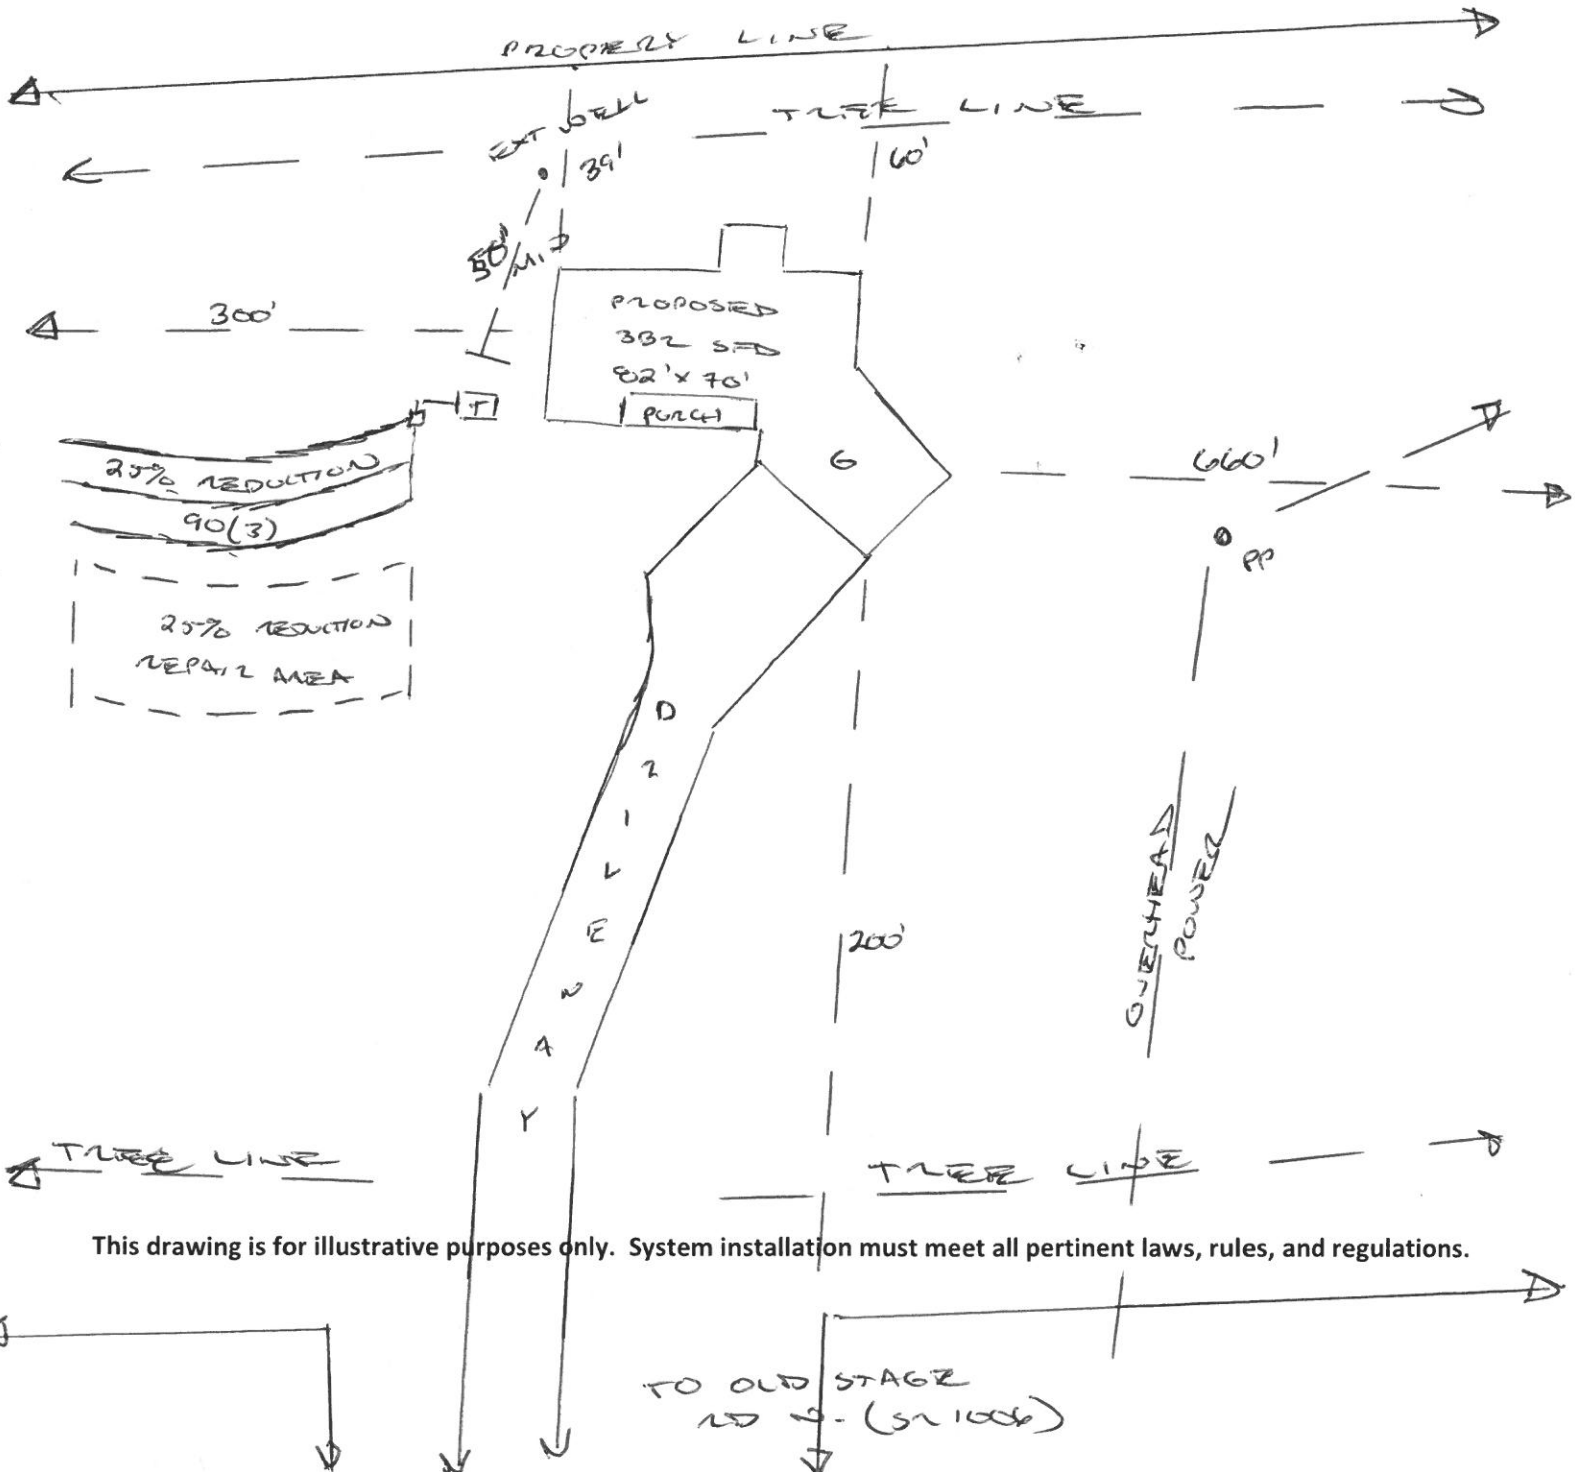 PROPERY LINE
TREE LINE
EXT WELL
39'
60'
50' MIN
300'
PROPOSED
3BR SFD
82' x 70'
PORCH
T
25% REDUCTION
90(3)
G
660'
PP
25% REDUCTION
REPAIR AREA
DRIVEWAY
OVERHEAD
POWER
200'
TREE LINE
TREE LINE
This drawing is for illustrative purposes only. System installation must meet all pertinent laws, rules, and regulations.
TO OLD STAGE
RD N. (SR 1006)